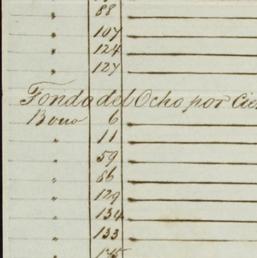 " 88
" 107
" 124
" 127
Fondo del Ocho por Cie
Bono 6
" 11
" 59
" 66
" 129
" 134
" 133